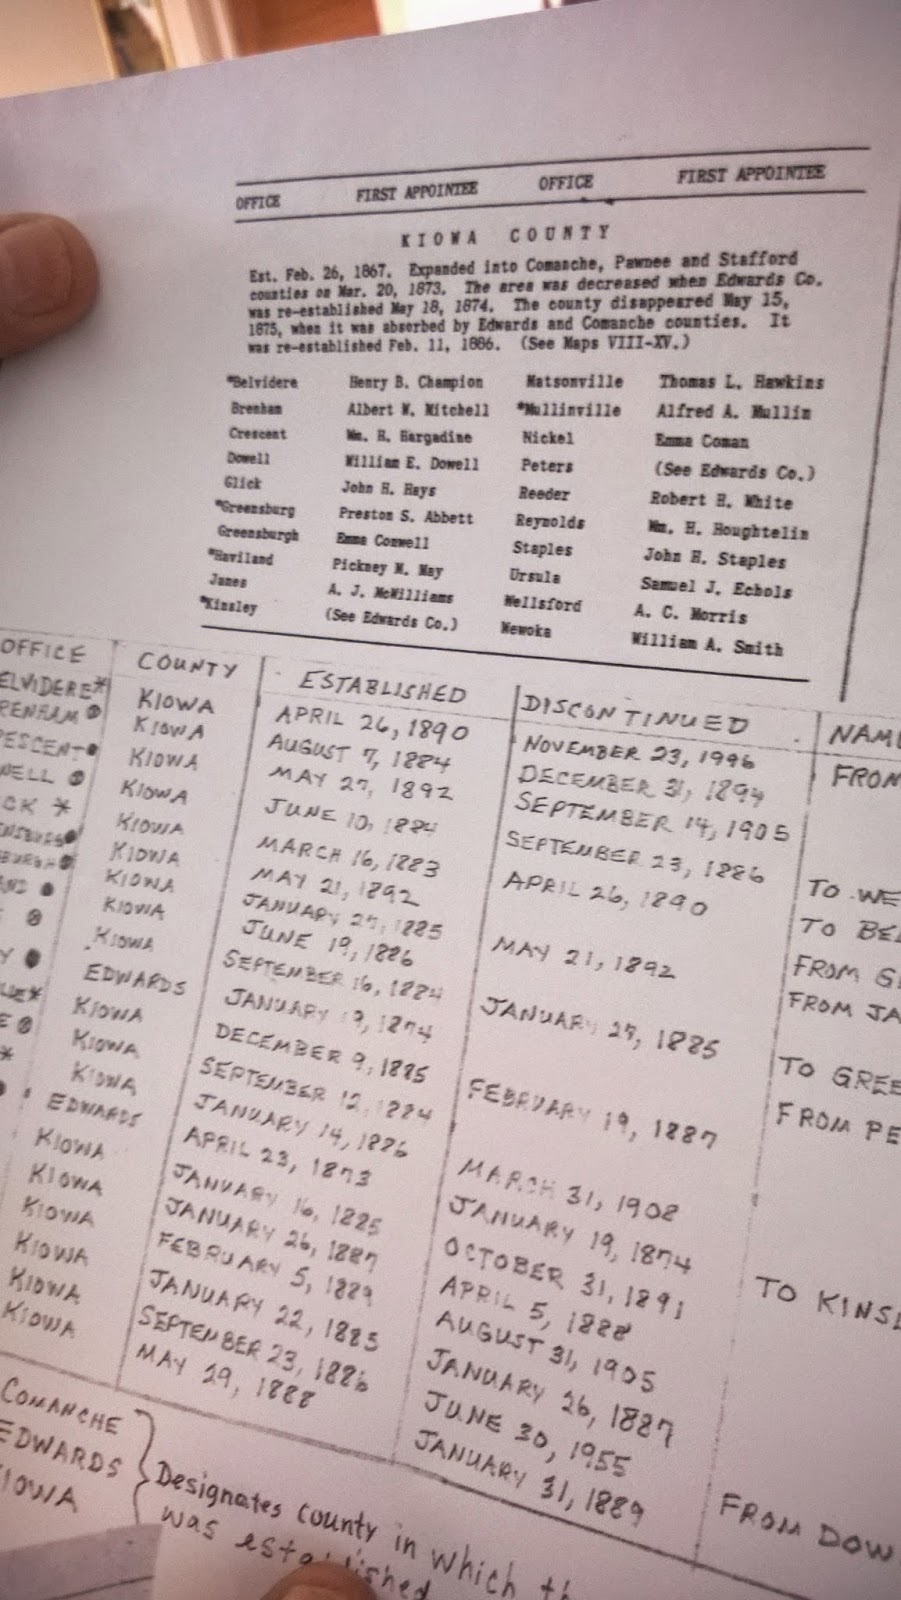 OFFICE FIRST APPOINTEE OFFICE FIRST APPOINTEE
KIOWA COUNTY
Est. Feb. 26, 1867. Expanded into Comanche, Pawnee and Stafford
counties on Mar. 20, 1873. The area was decreased when Edwards Co.
was re-established May 18, 1874. The county disappeared May 15,
1875, when it was absorbed by Edwards and Comanche counties. It
was re-established Feb. 11, 1886. (See Maps VIII-XV.)
*Belvidere Henry B. Champion Matsonville Thomas L. Hawkins
Brenham Albert W. Mitchell *Mullinville Alfred A. Mullin
Crescent Wm. H. Hargadine Nickel Emma Coman
Dowell William E. Dowell Peters (See Edwards Co.)
Glick John H. Hays Reeder Robert H. White
*Greensburg Preston S. Abbett Reynolds Wm. H. Houghtelin
Greensburgh Emma Conwell Staples John H. Staples
*Haviland Pickney M. May Ursula Samuel J. Echols
Janes A. J. McWilliams Wellsford A. C. Morris
*Kinsley (See Edwards Co.) Wewoka William A. Smith
OFFICE COUNTY ESTABLISHED DISCONTINUED NAM
ELVIDERE* KIOWA APRIL 26, 1890 NOVEMBER 23, 1996 FROM
RENHAM KIOWA AUGUST 7, 1884 DECEMBER 31, 1894
RESCENT KIOWA MAY 27, 1892 SEPTEMBER 14, 1905
WELL KIOWA JUNE 10, 1884 SEPTEMBER 23, 1886 TO WE
ICK * KIOWA MARCH 16, 1883 APRIL 26, 1890 TO BEL
ENSBURG KIOWA MAY 21, 1892 FROM G
SBURGH KIOWA JANUARY 27, 1885 MAY 21, 1892 FROM JA
AND KIOWA JUNE 19, 1886
KIOWA SEPTEMBER 16, 1884 JANUARY 27, 1885 TO GREE
Y EDWARDS JANUARY 19, 1874 FROM PE
KIOWA DECEMBER 9, 1885 FEBRUARY 19, 1887
E KIOWA SEPTEMBER 12, 1884
* KIOWA JANUARY 14, 1886 MARCH 31, 1908
EDWARDS APRIL 23, 1873 JANUARY 19, 1874 TO KINSL
KIOWA JANUARY 16, 1885 OCTOBER 31, 1891
KIOWA JANUARY 26, 1887 APRIL 5, 1888
KIOWA FEBRUARY 5, 1889 AUGUST 31, 1905
KIOWA JANUARY 22, 1885 JANUARY 26, 1887
KIOWA SEPTEMBER 23, 1886 JUNE 30, 1955 FROM DOW
KIOWA MAY 29, 1888 JANUARY 31, 1889
COMANCHE
EDWARDS
KIOWA
Designates county in which th
was established